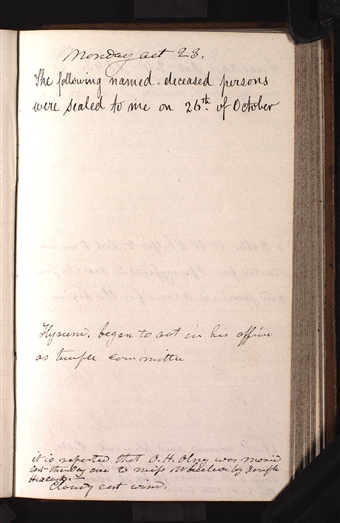 Monday oct 23.
The following named deceased persons
were sealed to me on 26th of October
Hyrum. began to act in his office
as temple committee
it is reported that O. H. Olney was marid
last thursday eve to miss Wheeler by Joseph
Cloudy east wind.